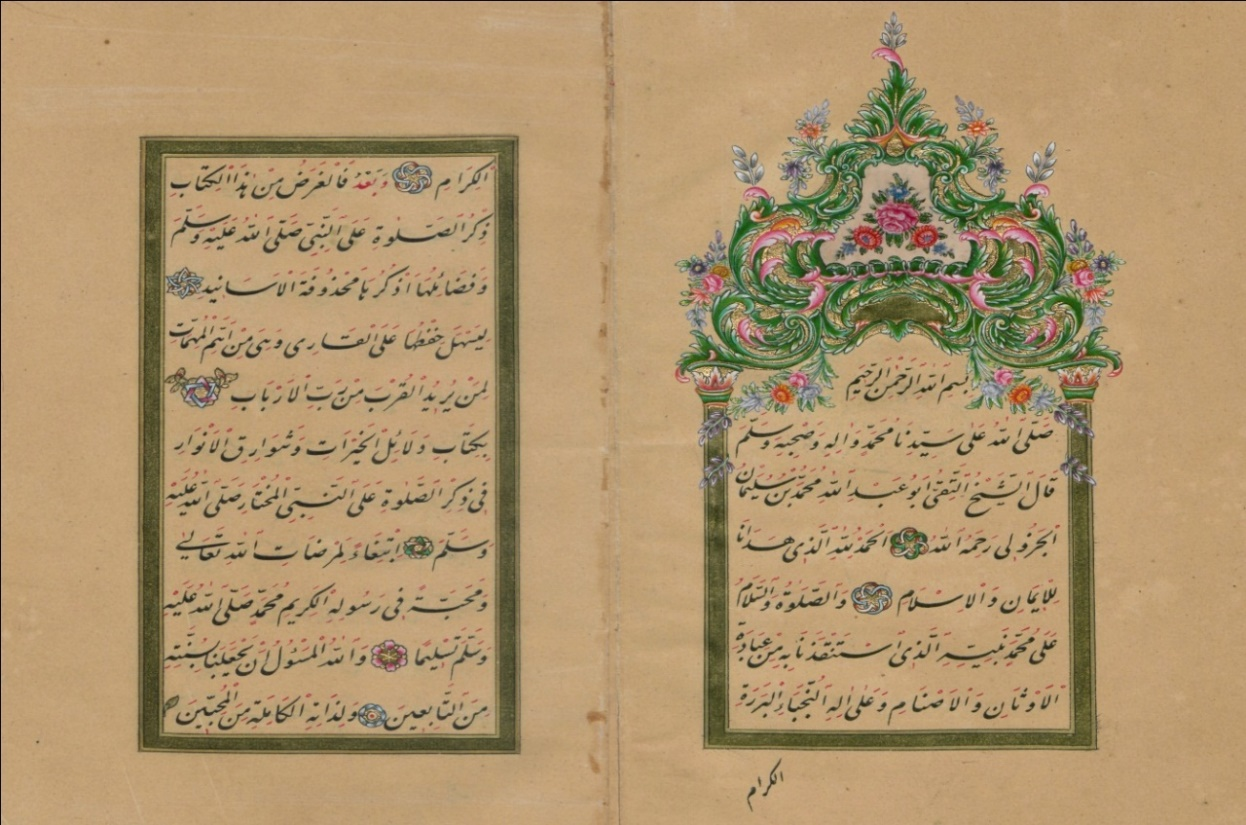 بِسْمِ اللّٰهِ الرَّحْمٰنِ الرَّحِيْمِ
صَلَّى اللّٰهُ عَلٰى سَيِّدِنَا مُحَمَّدٍ وَاٰلِهِ وَصَحْبِهِ وَسَلَّمَ
قَالَ الشَّيْخُ التَّقِىُّ اَبُو عَبْدِ اللّٰهِ مُحَمَّدُ بْنُ سُلَيْمَانَ
الْجَزُولِى رَحِمَهُ اللّٰهُ اَلْحَمْدُ لِلّٰهِ الَّذِى هَدَانَا
لِلْاِيمَانِ وَالْاِسْلَامِ وَالصَّلٰوةُ وَالسَّلَامُ
عَلٰى مُحَمَّدٍ نَبِيِّهِ الَّذِى اسْتَنْقَذَنَا بِهِ مِنْ عِبَادَةِ
الْاَوْثَانِ وَالْاَصْنَامِ وَعَلٰى اٰلِهِ النُّجَبَاءِ الْبَرَرَةِ
الكرام
الْكِرَامِ وَبَعْدُ فَالْغَرَضُ مِنْ هٰذَا الْكِتَابِ
ذِكْرُ الصَّلٰوةِ عَلَى النَّبِىِّ صَلَّى اللّٰهُ عَلَيْهِ وَسَلَّمَ
وَفَضَائِلُهَا اَذْكُرُهَا مَحْذُوفَةَ الْاَسَانِيدِ
لِيَسْهُلَ حِفْظُهَا عَلَى الْقَارِى وَهِىَ مِنْ اَهَمِّ الْمُهِمَّاتِ
لِمَنْ يُرِيدُ الْقُرْبَ مِنْ رَبِّ الْاَرْبَابِ
بِكِتَابِ دَلَائِلِ الْخَيْرَاتِ وَشَوَارِقِ الْاَنْوَارِ
فِى ذِكْرِ الصَّلٰوةِ عَلَى النَّبِىِّ الْمُخْتَارِ صَلَّى اللّٰهُ عَلَيْهِ
وَسَلَّمَ ابْتِغَاءً لِمَرْضَاتِ اللّٰهِ تَعَالٰى
وَمَحَبَّةً فِى رَسُولِهِ الْكَرِيمِ مُحَمَّدٍ صَلَّى اللّٰهُ عَلَيْهِ
وَسَلَّمَ تَسْلِيمًا وَاللّٰهُ الْمَسْئُولُ اَنْ يَجْعَلَنَا لِسُنَّتِهِ
مِنَ التَّابِعِينَ وَلِذَاتِهِ الْكَامِلَةِ مِنَ الْمُحِبِّينَ